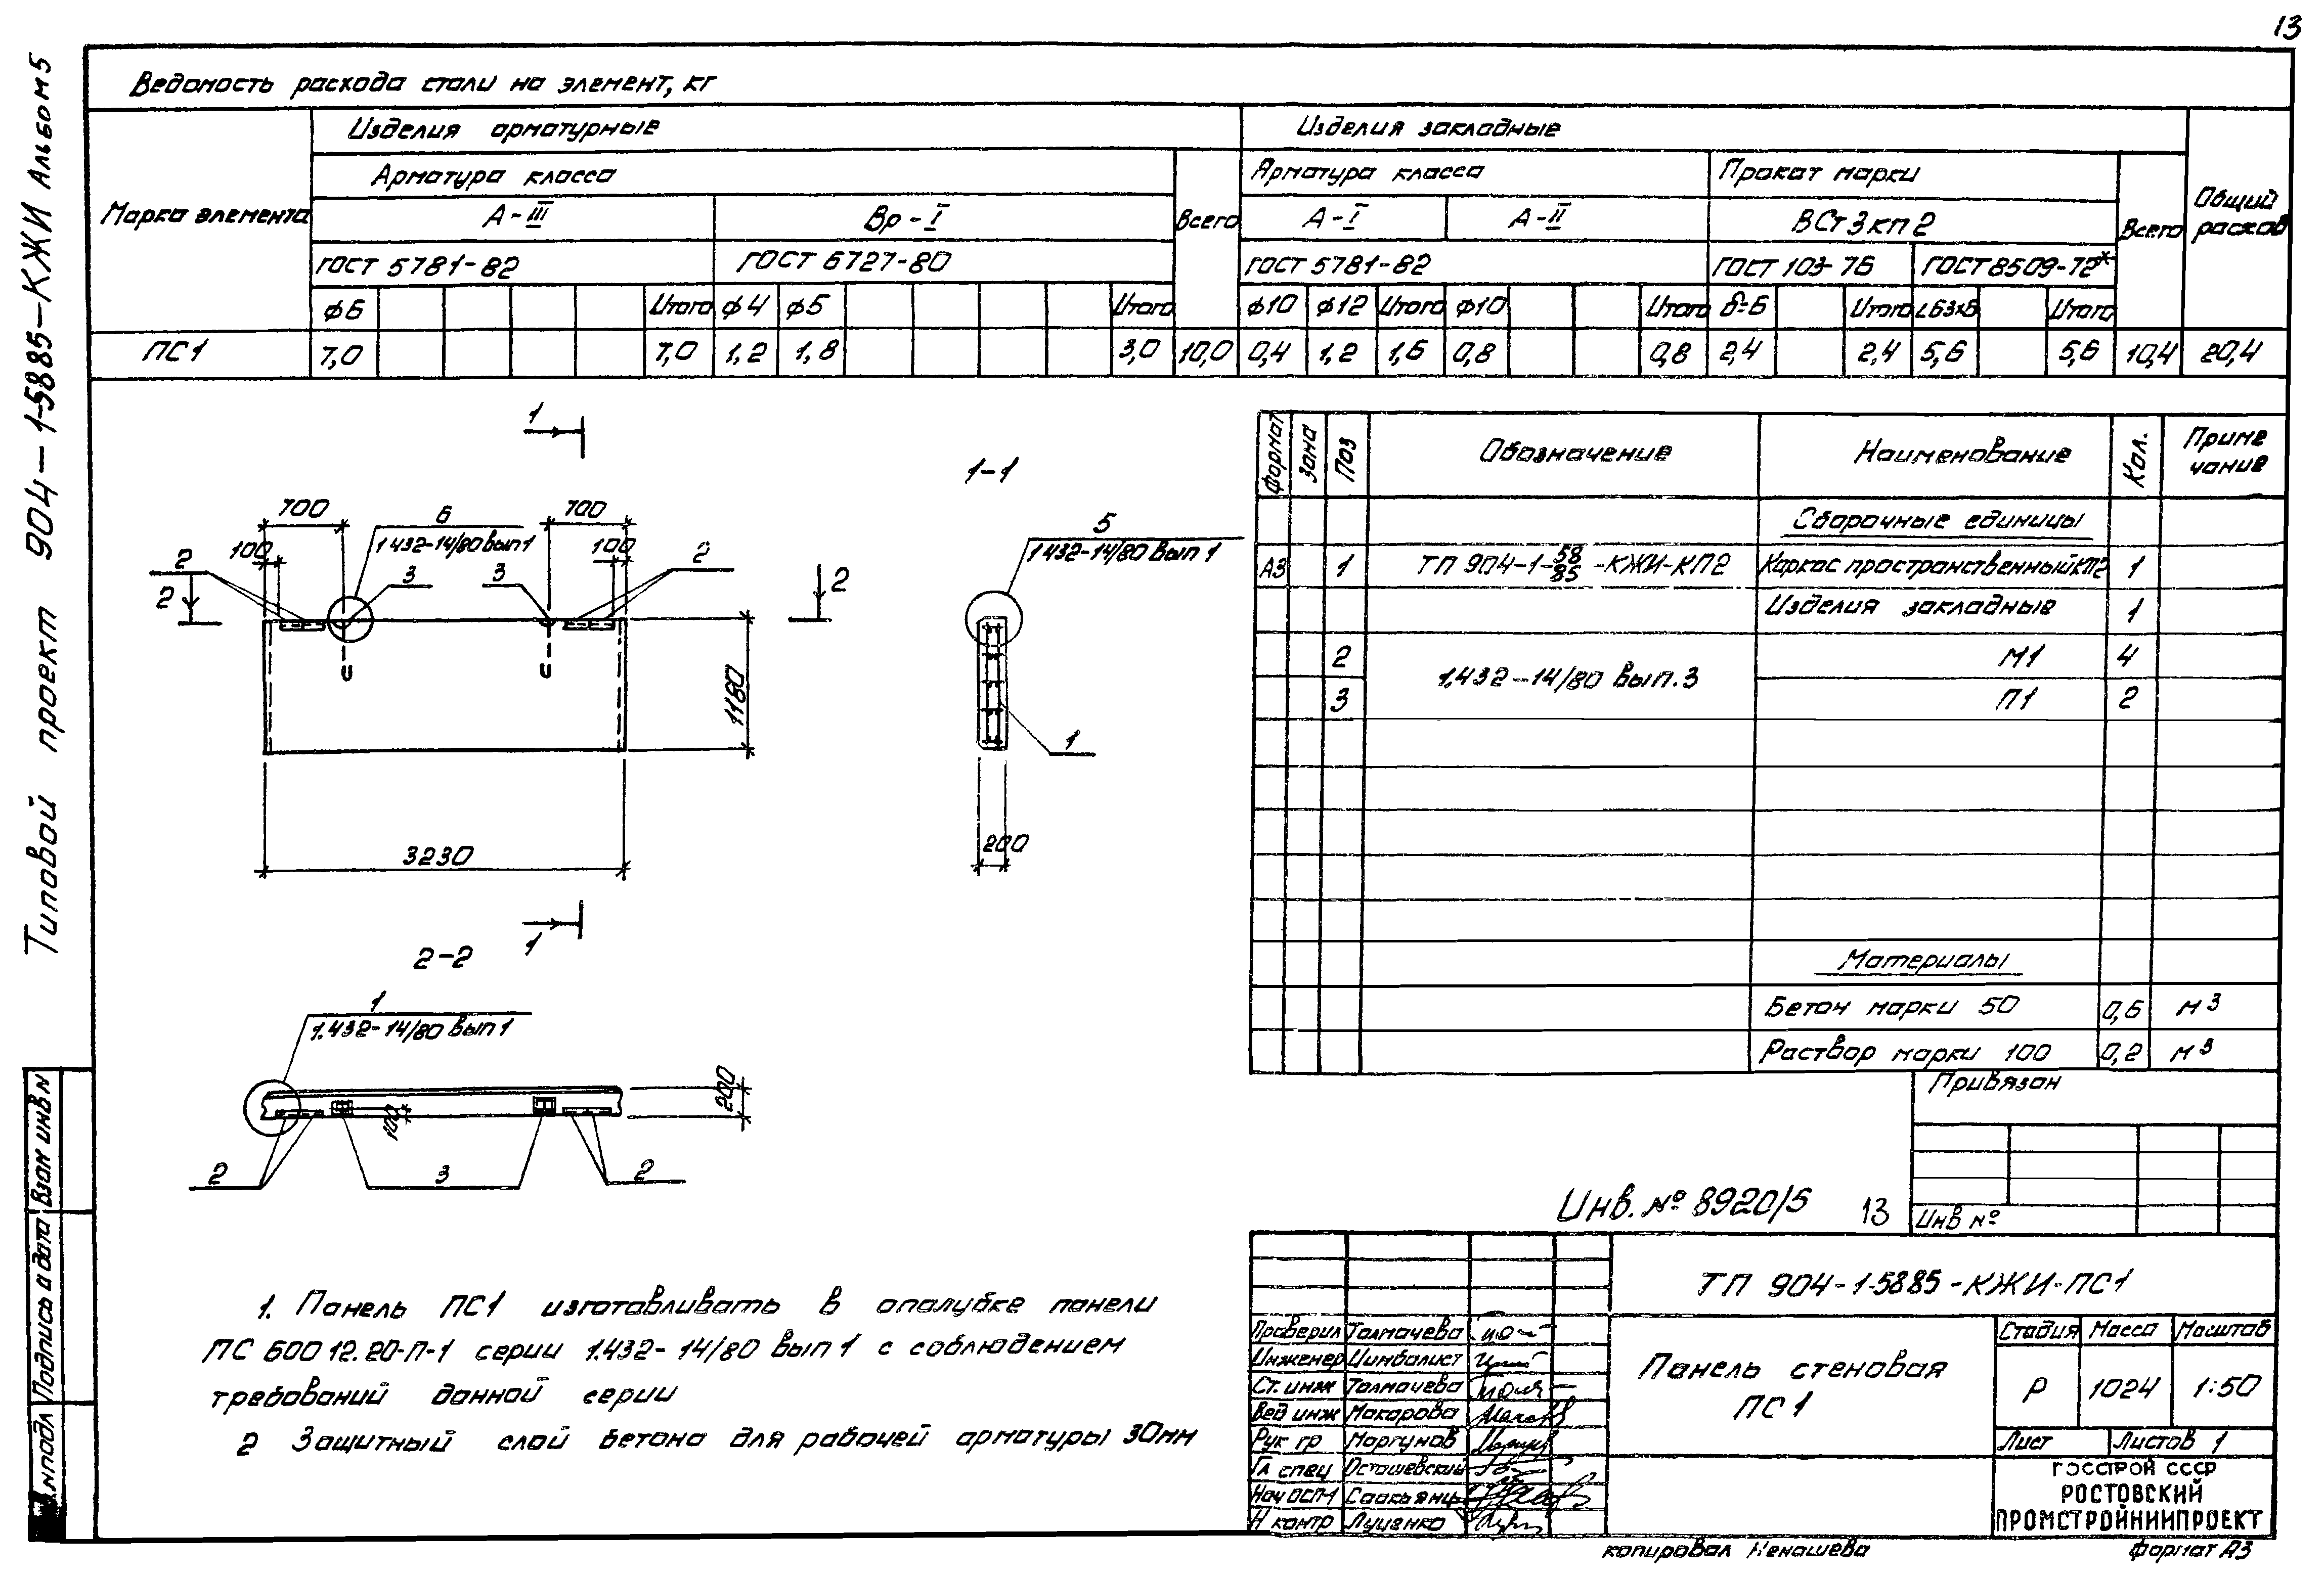 13
Типовой проект 904-1-5885-КЖИ Альбом 5
Ведомость расхода стали на элемент, кг
Марка элемента
Изделия арматурные
Изделия закладные
Общий расход
Арматура класса
Всего
Арматура класса
Прокат марки
Всего
А-III
Вр-I
А-I
А-II
ВСт3кп2
ГОСТ 5781-82
ГОСТ 6727-80
ГОСТ 5781-82
ГОСТ 103-76
ГОСТ 8509-72*
ф6 Итого ф4 ф5 Итого ф10 ф12 Итого ф10 Итого δ=6 Итого L63х6 Итого
ПС1 7,0 7,0 1,2 1,8 3,0 10,0 0,4 1,2 1,6 0,8 0,8 2,4 2,4 5,6 5,6 10,4 20,4
1
700
6
1.432-14/80 вып 1
700
100
100
2
3
3
2
2
2
1180
3230
1
1-1
5
1.432-14/80 вып 1
1
200
2-2
1
1.432-14/80 вып 1
200
100
2
3
2
Формат Зона Поз Обозначение Наименование Кол. Приме чание
Сборочные единицы
А3 1 ТП 904-1-58/85-КЖИ-КП2 Каркас пространственный КП2 1
Изделия закладные 1
2 М1 4
1.432-14/80 вып.3
3 П1 2
Материалы
Бетон марки 50 0,6 м3
Раствор марки 100 0,2 м3
Привязан
Инв №
Инв. № 8920/5 13
1. Панель ПС1 изготавливать в опалубке панели
ПС 600 12.20-П-1 серии 1.432-14/80 вып 1 с соблюдением
требований данной серии
2 Защитный слой бетона для рабочей арматуры 30мм
ТП 904-1-5885-КЖИ-ПС1
Проверил Толмачева
Инженер Цимбалист
Ст. инж Толмачева
Вед инж Макарова
Рук гр Моргунов
Гл спец Осташевский
Нач ОСП-1 Саакьянц
Н контр Луценко
Панель стеновая
ПС1
Стадия Масса Масштаб
Р 1024 1:50
Лист Листов 1
ГОССТРОЙ СССР
РОСТОВСКИЙ
ПРОМСТРОЙНИИПРОЕКТ
копировал Ненашева
формат А3
Взам инв N
Подпись и дата